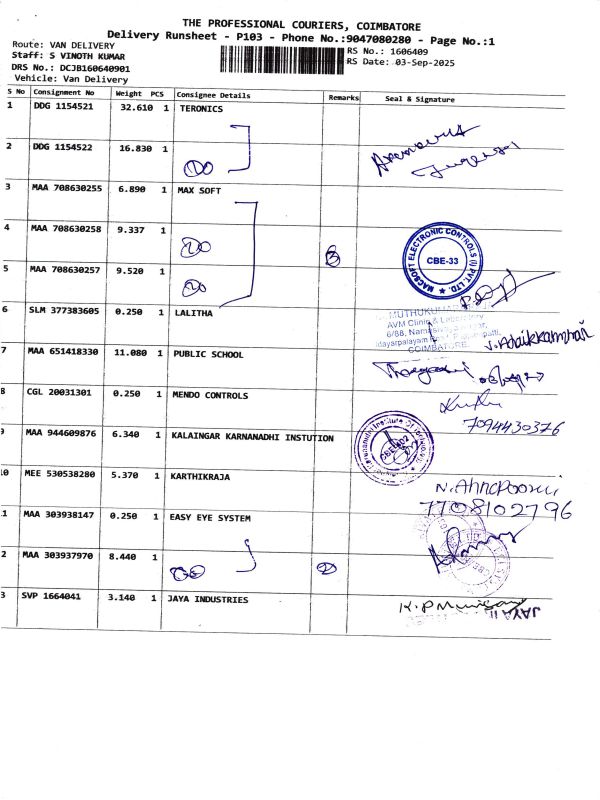 THE PROFESSIONAL COURIERS, COIMBATORE
Delivery Runsheet - P103 - Phone No.:9047080280 - Page No.:1
Route: VAN DELIVERY
RS No.: 1606409
Staff: S VINOTH KUMAR
RS Date: 03-Sep-2025
DRS No.: DCJB160640901
Vehicle: Van Delivery
S No Consignment No Weight PCS Consignee Details Remarks Seal & Signature
1 DDG 1154521 32.610 1 TERONICS
2 DDG 1154522 16.830 1
3 MAA 708630255 6.890 1 MAX SOFT
4 MAA 708630258 9.337 1
MACSOFT ELECTRONIC CONTROLS (I) PVT. LTD.
CBE-33
5 MAA 708630257 9.520 1
6 SLM 377383605 0.250 1 LALITHA
AVM Clinic & Laboratory
COIMBATORE
7 MAA 651418330 11.080 1 PUBLIC SCHOOL
8 CGL 20031301 0.250 1 MENDO CONTROLS
7094430376
9 MAA 944609876 6.340 1 KALAINGAR KARNANADHI INSTUTION
0 MEE 530538280 5.370 1 KARTHIKRAJA
7708102796
.1 MAA 303938147 0.250 1 EASY EYE SYSTEM
2 MAA 303937970 8.440 1
3 SVP 1664041 3.140 1 JAYA INDUSTRIES